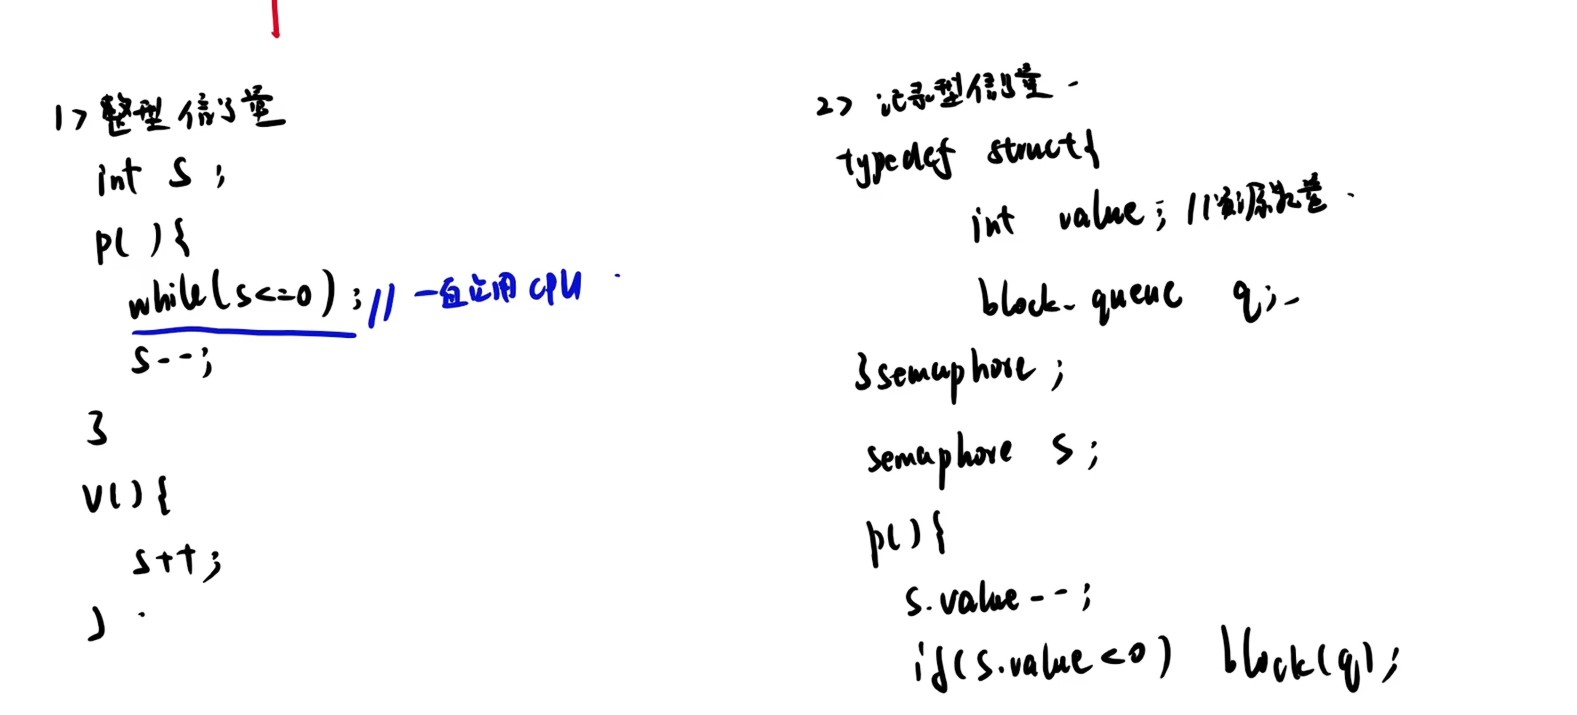 1> 整型信号量
int s ;
p( ){
while(s<=0) ; // 一直占用 CPU
s--;
}
v( ){
s++;
}
2> 记录型信号量
typedef struct{
int value; //资源数量
block_queue q;
}semaphore ;
semaphore s ;
p( ){
s.value--;
if(s.value<0) block(q);